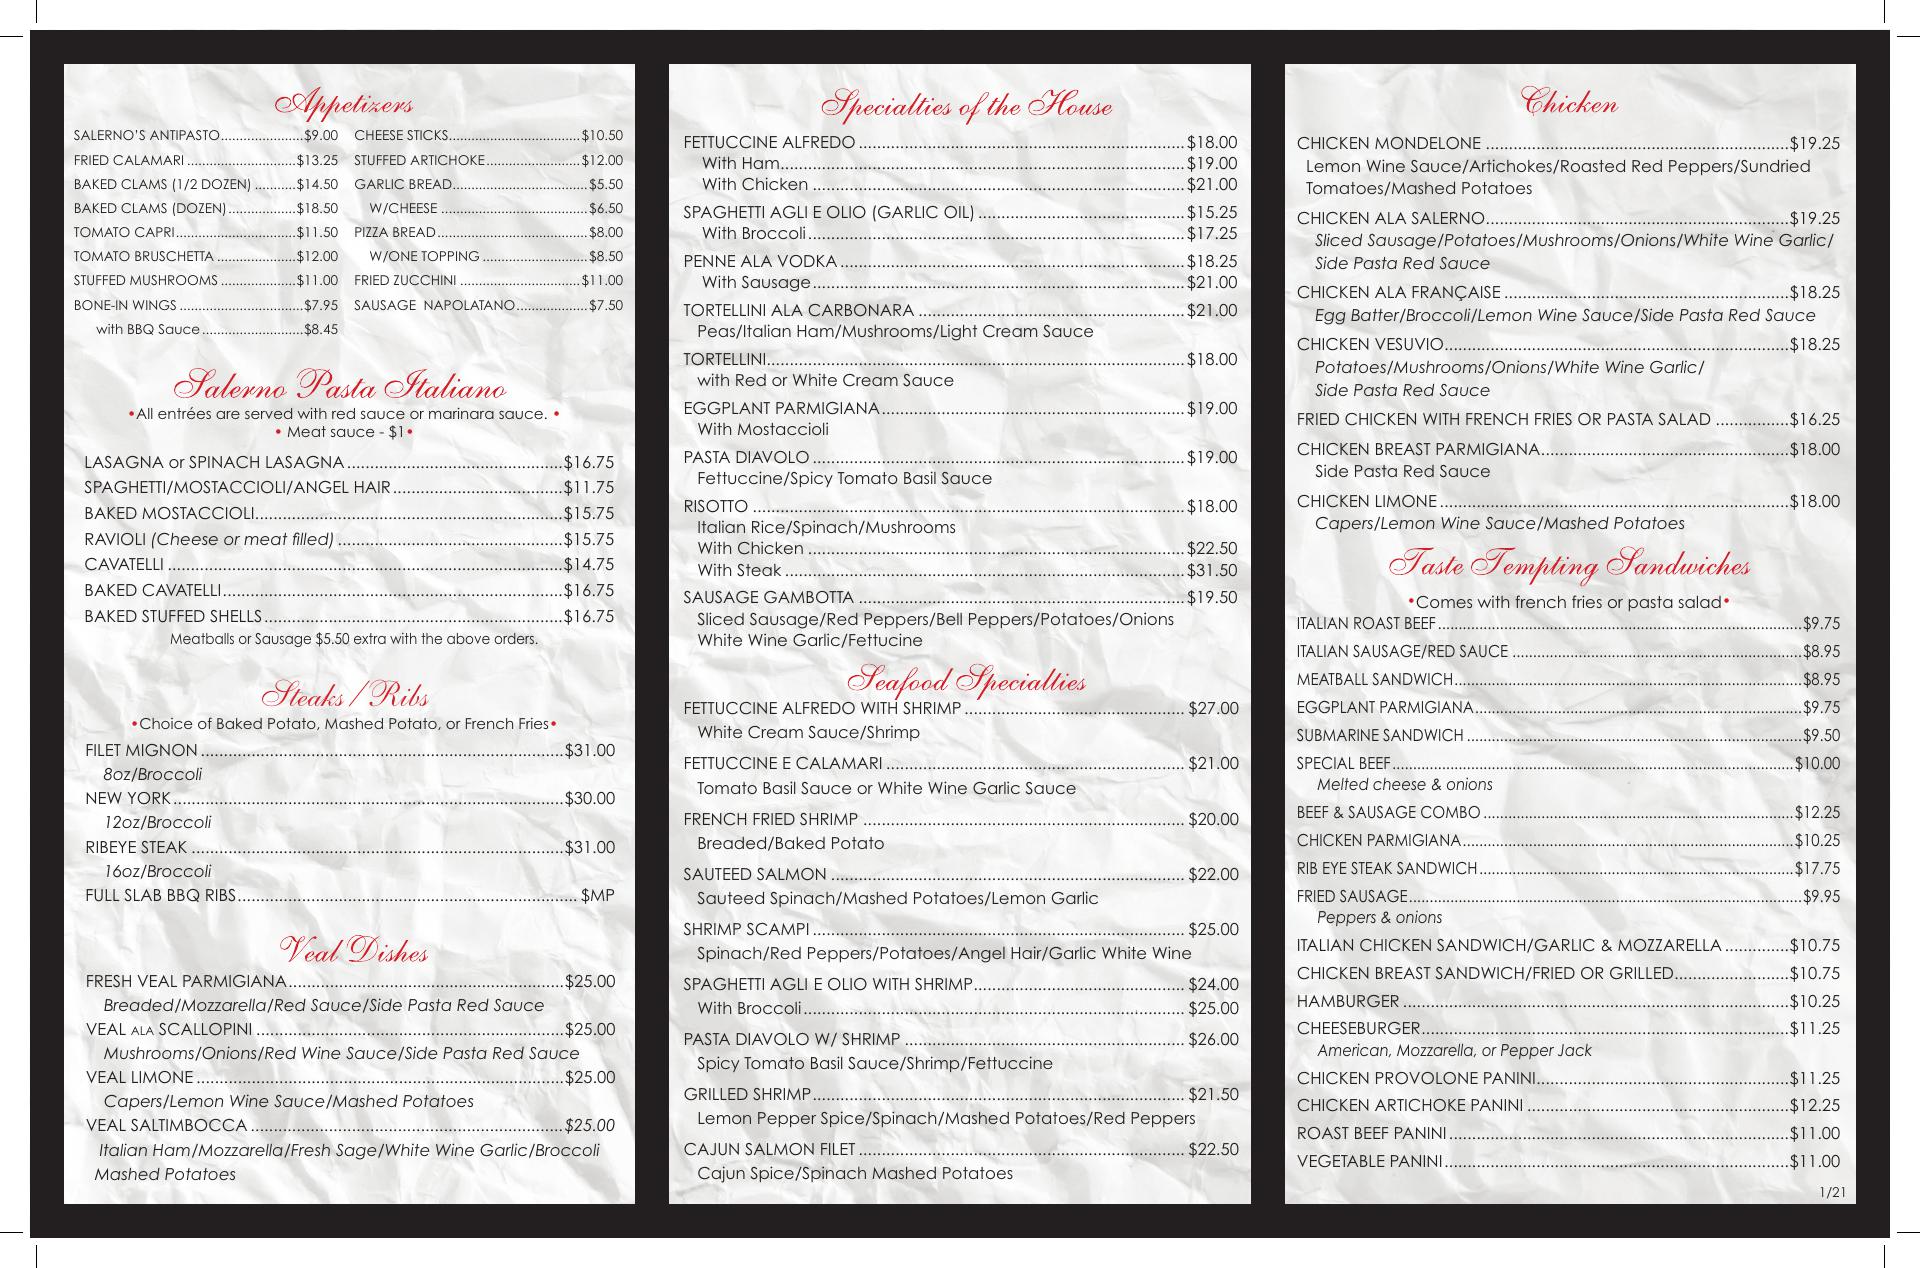 Appetizers
SALERNO'S ANTIPASTO.....................$9.00
FRIED CALAMARI ...........................$13.25
BAKED CLAMS (1/2 DOZEN) ..........$14.50
BAKED CLAMS (DOZEN).................$18.50
TOMATO CAPRI..............................$11.50
TOMATO BRUSCHETTA ...................$12.00
STUFFED MUSHROOMS ..................$11.00
BONE-IN WINGS ...............................$7.95
with BBQ Sauce.........................$8.45
CHEESE STICKS.................................$10.50
STUFFED ARTICHOKE........................$12.00
GARLIC BREAD..................................$5.50
W/CHEESE .....................................$6.50
PIZZA BREAD......................................$8.00
W/ONE TOPPING ...........................$8.50
FRIED ZUCCHINI ..............................$11.00
SAUSAGE NAPOLATANO..................$7.50
Salerno Pasta Italiano
•All entrées are served with red sauce or marinara sauce. •
• Meat sauce - $1•
LASAGNA or SPINACH LASAGNA...............................................$16.75
SPAGHETTI/MOSTACCIOLI/ANGEL HAIR.....................................$11.75
BAKED MOSTACCIOLI...................................................................$15.75
RAVIOLI (Cheese or meat filled) .................................................$15.75
CAVATELLI ......................................................................................$14.75
BAKED CAVATELLI..........................................................................$16.75
BAKED STUFFED SHELLS.................................................................$16.75
Meatballs or Sausage $5.50 extra with the above orders.
Steaks/Ribs
•Choice of Baked Potato, Mashed Potato, or French Fries•
FILET MIGNON...............................................................................$31.00
8oz/Broccoli
NEW YORK.....................................................................................$30.00
12oz/Broccoli
RIBEYE STEAK .................................................................................$31.00
16oz/Broccoli
FULL SLAB BBQ RIBS.......................................................................... $MP
Veal Dishes
FRESH VEAL PARMIGIANA............................................................$25.00
Breaded/Mozzarella/Red Sauce/Side Pasta Red Sauce
VEAL ALA SCALLOPINI ...................................................................$25.00
Mushrooms/Onions/Red Wine Sauce/Side Pasta Red Sauce
VEAL LIMONE................................................................................$25.00
Capers/Lemon Wine Sauce/Mashed Potatoes
VEAL SALTIMBOCCA ....................................................................$25.00
Italian Ham/Mozzarella/Fresh Sage/White Wine Garlic/Broccoli
Mashed Potatoes
Specialties of the House
FETTUCCINE ALFREDO ......................................................................$18.00
With Ham.......................................................................................$19.00
With Chicken .................................................................................$21.00
SPAGHETTI AGLI E OLIO (GARLIC OIL) .............................................$15.25
With Broccoli..................................................................................$17.25
PENNE ALA VODKA ...........................................................................$18.25
With Sausage.................................................................................$21.00
TORTELLINI ALA CARBONARA ..........................................................$21.00
Peas/Italian Ham/Mushrooms/Light Cream Sauce
TORTELLINI...........................................................................................$18.00
with Red or White Cream Sauce
EGGPLANT PARMIGIANA..................................................................$19.00
With Mostaccioli
PASTA DIAVOLO .................................................................................$19.00
Fettuccine/Spicy Tomato Basil Sauce
RISOTTO ..............................................................................................$18.00
Italian Rice/Spinach/Mushrooms
With Chicken ..................................................................................$22.50
With Steak .......................................................................................$31.50
SAUSAGE GAMBOTTA .......................................................................$19.50
Sliced Sausage/Red Peppers/Bell Peppers/Potatoes/Onions
White Wine Garlic/Fettucine
Seafood Specialties
FETTUCCINE ALFREDO WITH SHRIMP ................................................$27.00
White Cream Sauce/Shrimp
FETTUCCINE E CALAMARI ................................................................ $21.00
Tomato Basil Sauce or White Wine Garlic Sauce
FRENCH FRIED SHRIMP ..................................................................... $20.00
Breaded/Baked Potato
SAUTEED SALMON ............................................................................ $22.00
Sauteed Spinach/Mashed Potatoes/Lemon Garlic
SHRIMP SCAMPI ................................................................................ $25.00
Spinach/Red Peppers/Potatoes/Angel Hair/Garlic White Wine
SPAGHETTI AGLI E OLIO WITH SHRIMP.............................................. $24.00
With Broccoli.................................................................................. $25.00
PASTA DIAVOLO W/ SHRIMP ............................................................ $26.00
Spicy Tomato Basil Sauce/Shrimp/Fettuccine
GRILLED SHRIMP................................................................................ $21.50
Lemon Pepper Spice/Spinach/Mashed Potatoes/Red Peppers
CAJUN SALMON FILET ...................................................................... $22.50
Cajun Spice/Spinach Mashed Potatoes
Chicken
CHICKEN MONDELONE ..................................................................$19.25
Lemon Wine Sauce/Artichokes/Roasted Red Peppers/Sundried
Tomatoes/Mashed Potatoes
CHICKEN ALA SALERNO..................................................................$19.25
Sliced Sausage/Potatoes/Mushrooms/Onions/White Wine Garlic/
Side Pasta Red Sauce
CHICKEN ALA FRANÇAISE ..............................................................$18.25
Egg Batter/Broccoli/Lemon Wine Sauce/Side Pasta Red Sauce
CHICKEN VESUVIO...........................................................................$18.25
Potatoes/Mushrooms/Onions/White Wine Garlic/
Side Pasta Red Sauce
FRIED CHICKEN WITH FRENCH FRIES OR PASTA SALAD ................$16.25
CHICKEN BREAST PARMIGIANA......................................................$18.00
Side Pasta Red Sauce
CHICKEN LIMONE ............................................................................$18.00
Capers/Lemon Wine Sauce/Mashed Potatoes
Taste Tempting Sandwiches
•Comes with french fries or pasta salad•
ITALIAN ROAST BEEF....................................................................................$9.75
ITALIAN SAUSAGE/RED SAUCE ..................................................................$8.95
MEATBALL SANDWICH................................................................................$8.95
EGGPLANT PARMIGIANA...........................................................................$9.75
SUBMARINE SANDWICH .............................................................................$9.50
SPECIAL BEEF..............................................................................................$10.00
Melted cheese & onions
BEEF & SAUSAGE COMBO ........................................................................$12.25
CHICKEN PARMIGIANA.............................................................................$10.25
RIB EYE STEAK SANDWICH.........................................................................$17.75
FRIED SAUSAGE...........................................................................................$9.95
Peppers & onions
ITALIAN CHICKEN SANDWICH/GARLIC & MOZZARELLA ..............$10.75
CHICKEN BREAST SANDWICH/FRIED OR GRILLED.........................$10.75
HAMBURGER ....................................................................................$10.25
CHEESEBURGER................................................................................$11.25
American, Mozzarella, or Pepper Jack
CHICKEN PROVOLONE PANINI.......................................................$11.25
CHICKEN ARTICHOKE PANINI .........................................................$12.25
ROAST BEEF PANINI..........................................................................$11.00
VEGETABLE PANINI...........................................................................$11.00
1/21